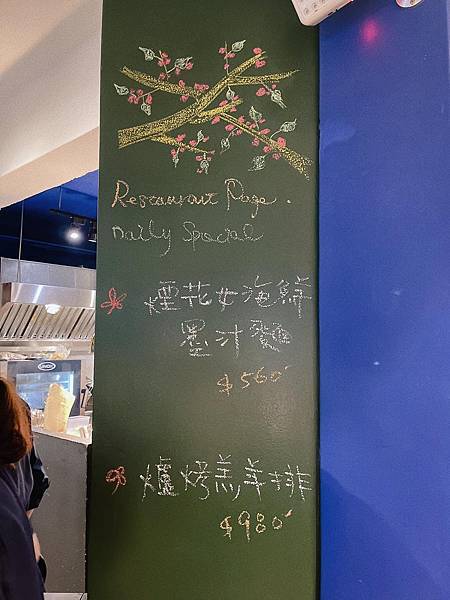 Restaurant Page.
Daily Special
煙花女海鮮
墨汁麵
$560
爐烤羔羊排
$980